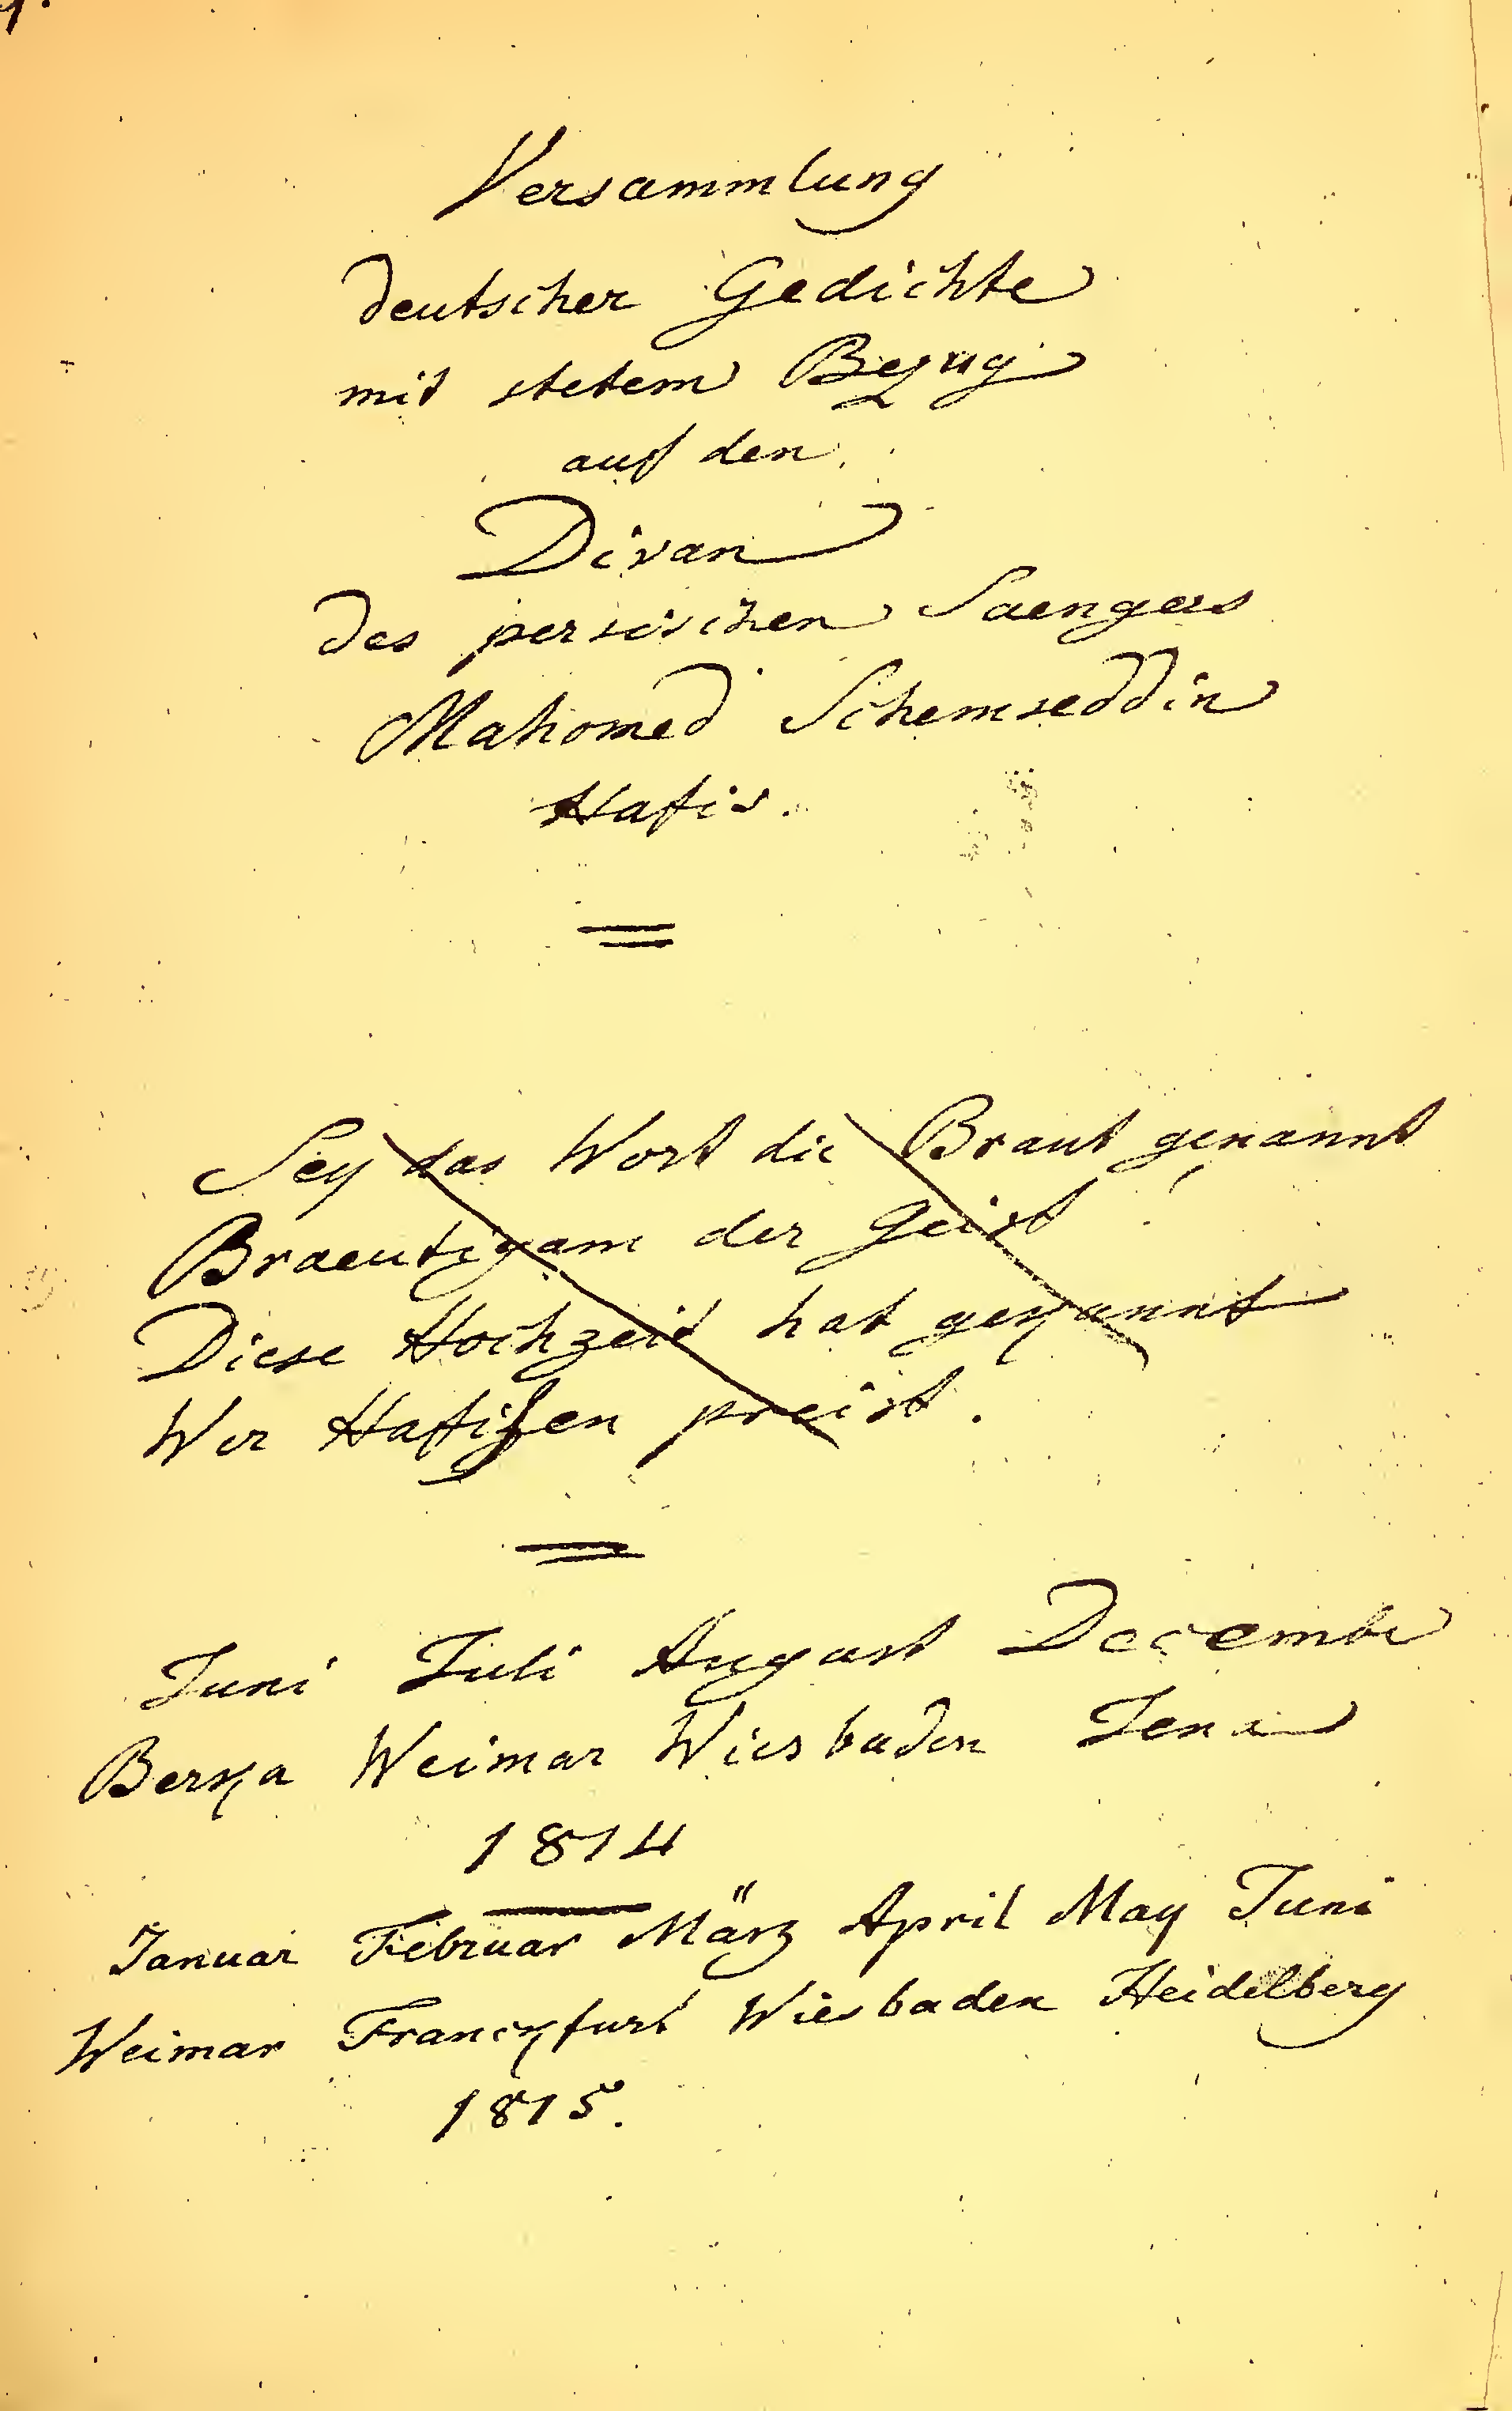 1.
Versammlung
deutscher Gedichte
mit stetem Bezug
auf den
Divan
des persischen Saengers
Mahomed Schemseddin
Hafis.
Sey das Wort die Braut genannt
Braeutigam der Geist
Diese Hochzeit hat gekannt
Wer Hafisen preist.
Juni Juli August December
Berka Weimar Wiesbaden Jena
1814
Januar Februar März April May Juni
Weimar Franckfurt Wiesbaden Heidelberg
1815.